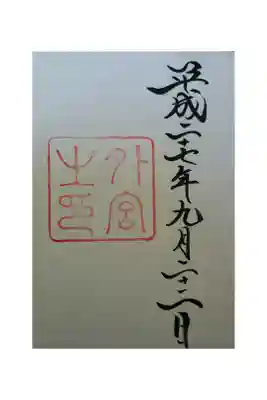 平成二十七年九月二十二日
外宮
之印